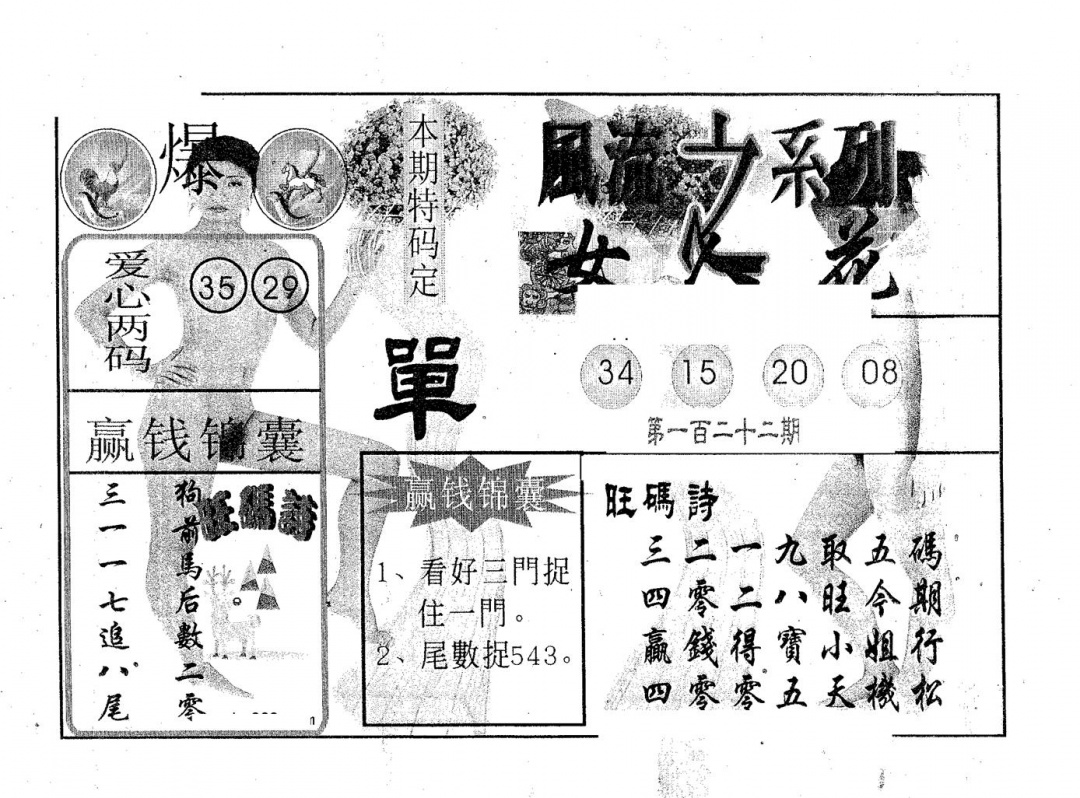 爆
爱心两码
35 29
赢钱锦囊
狗前馬后數二零
三一一七追八尾
旺碼詩
本期特码定
單
赢钱锦囊
1、看好三門捉
住一門。
2、尾數捉543。
風流之系列
女人花
34 15 20 08
第一百二十二期
旺碼詩
碼期行松
五今姐機
取旺小天
九八寶五
一二得零
二零錢零
三四贏四